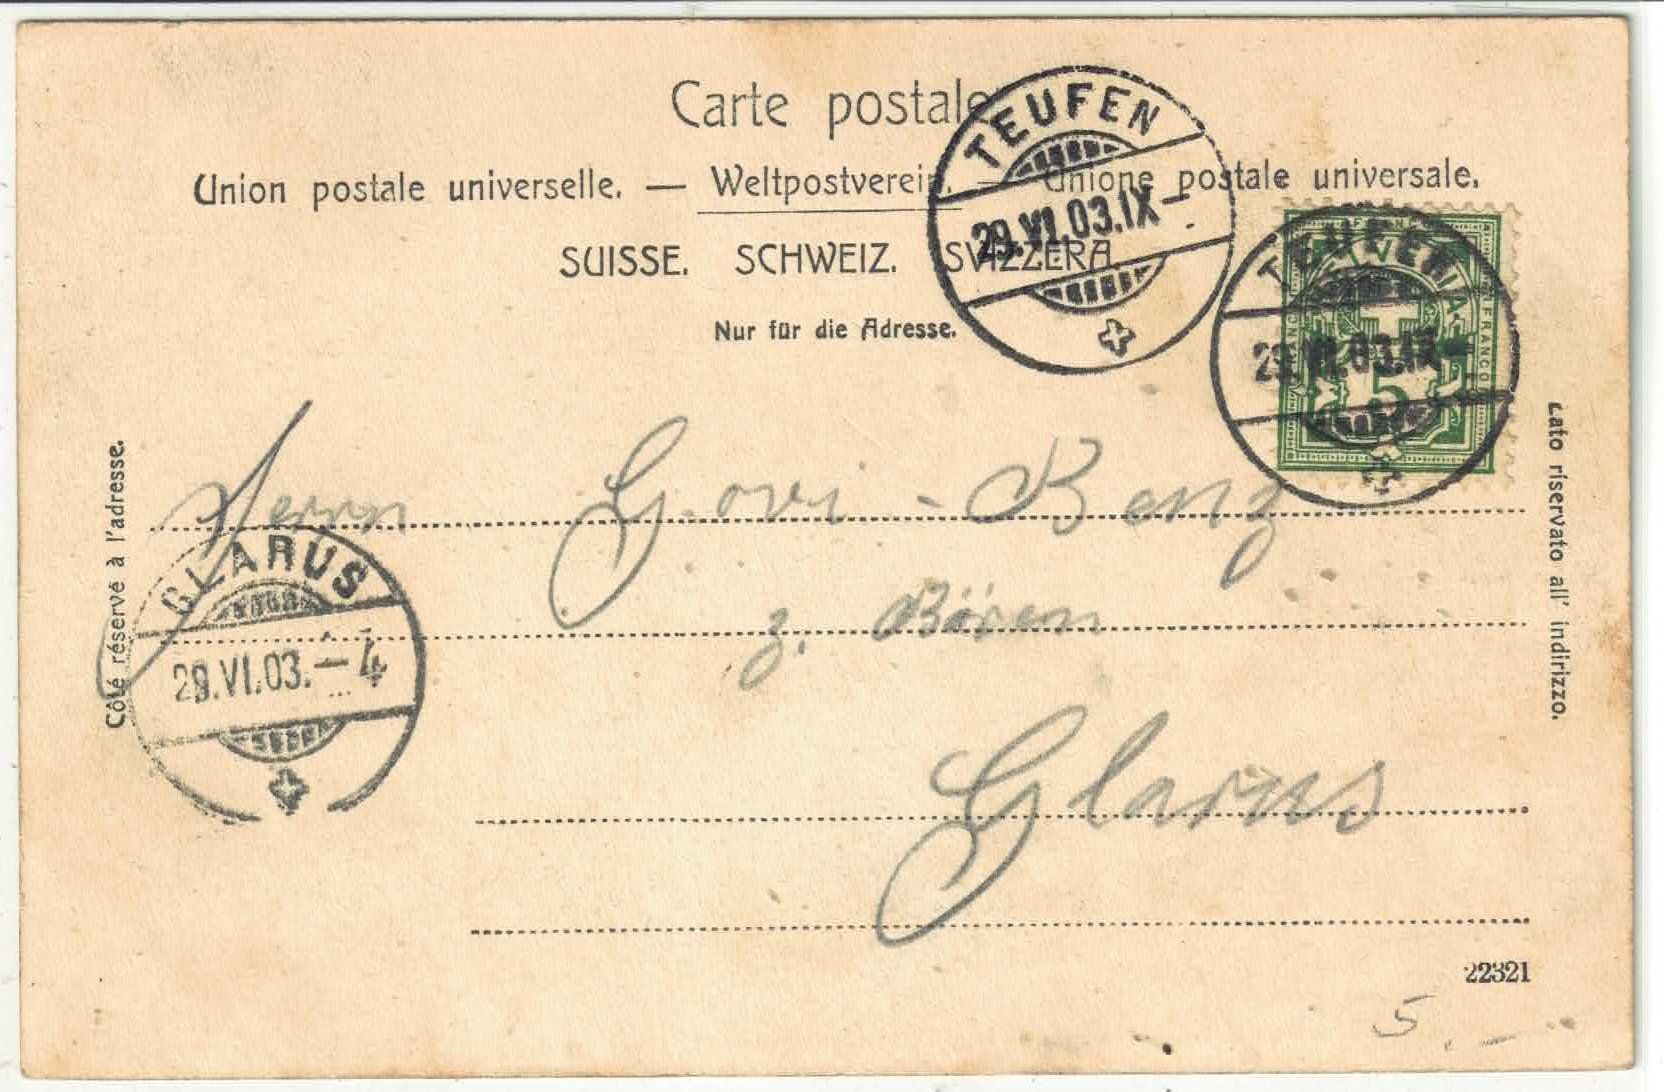 Carte postale
Union postale universelle. — Weltpostverein. — Unione postale universale.
SUISSE. SCHWEIZ. SVIZZERA
Nur für die Adresse.
TEUFEN
29.VI.03.IX-
TEUFEN
29.VI.03.IX-
HELVETIA
FRANCO
5
Côté réservé à l'adresse.
Lato riservato all' indirizzo.
Herrn G. - Benz
z. Bären
Glarus
GLARUS
29.VI.03.-4
22321
5.-